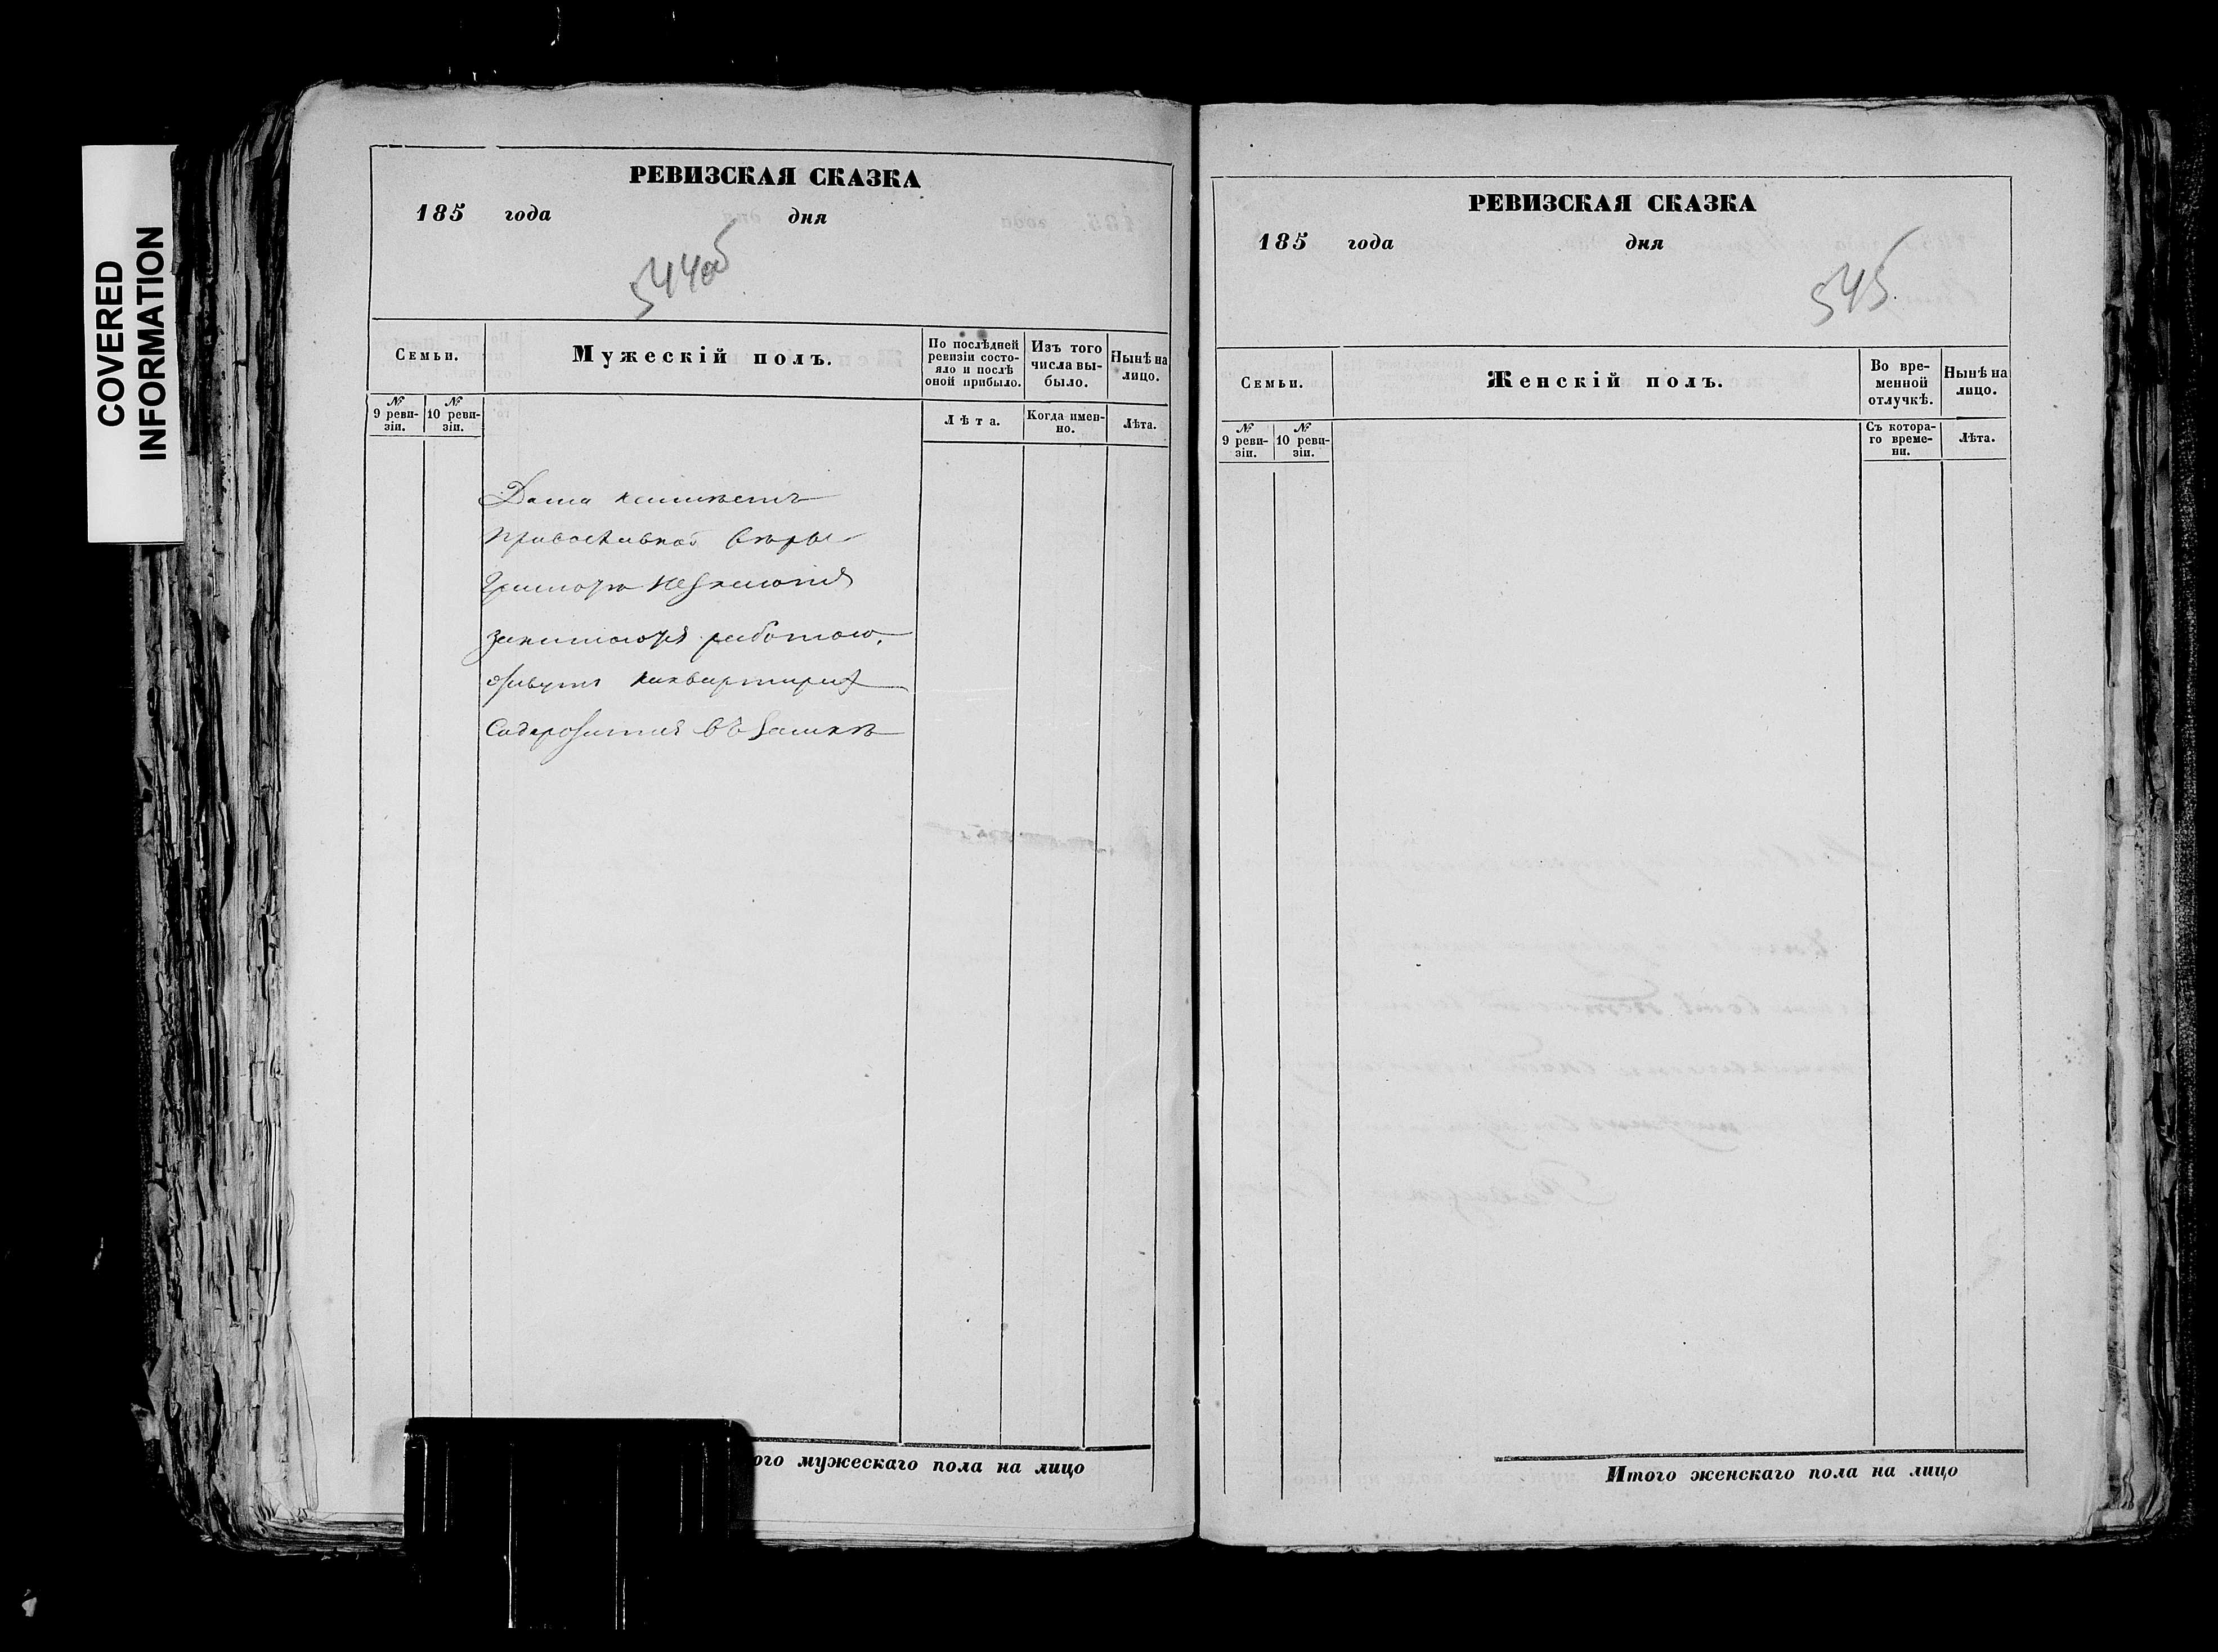 COVERED
INFORMATION
РЕВИЗСКАЯ СКАЗКА
185 года дня
544об
Семьи.
Мужескій полъ.
По послѣдней
ревизіи состо-
яло и послѣ
оной прибыло.
Изъ того
числа вы-
было.
Нынѣ на
лицо.
№
9 реви-
зіи.
№
10 реви-
зіи.
Лѣта.
Когда имен-
но.
Лѣта.
Дома неимѣетъ
православной вѣры
Грамотѣ незнаютъ
занимаются работою.
живутъ наквартирѣ
Содержится въ замкѣ
ого мужескаго пола на лицо
РЕВИЗСКАЯ СКАЗКА
185 года дня
545
Семьи.
Женскій полъ.
Во вре-
менной
отлучкѣ.
Нынѣ на
лицо.
№
9 реви-
зіи.
№
10 реви-
зіи.
Съ котора-
го време-
ни.
Лѣта.
Итого женскаго пола на лицо